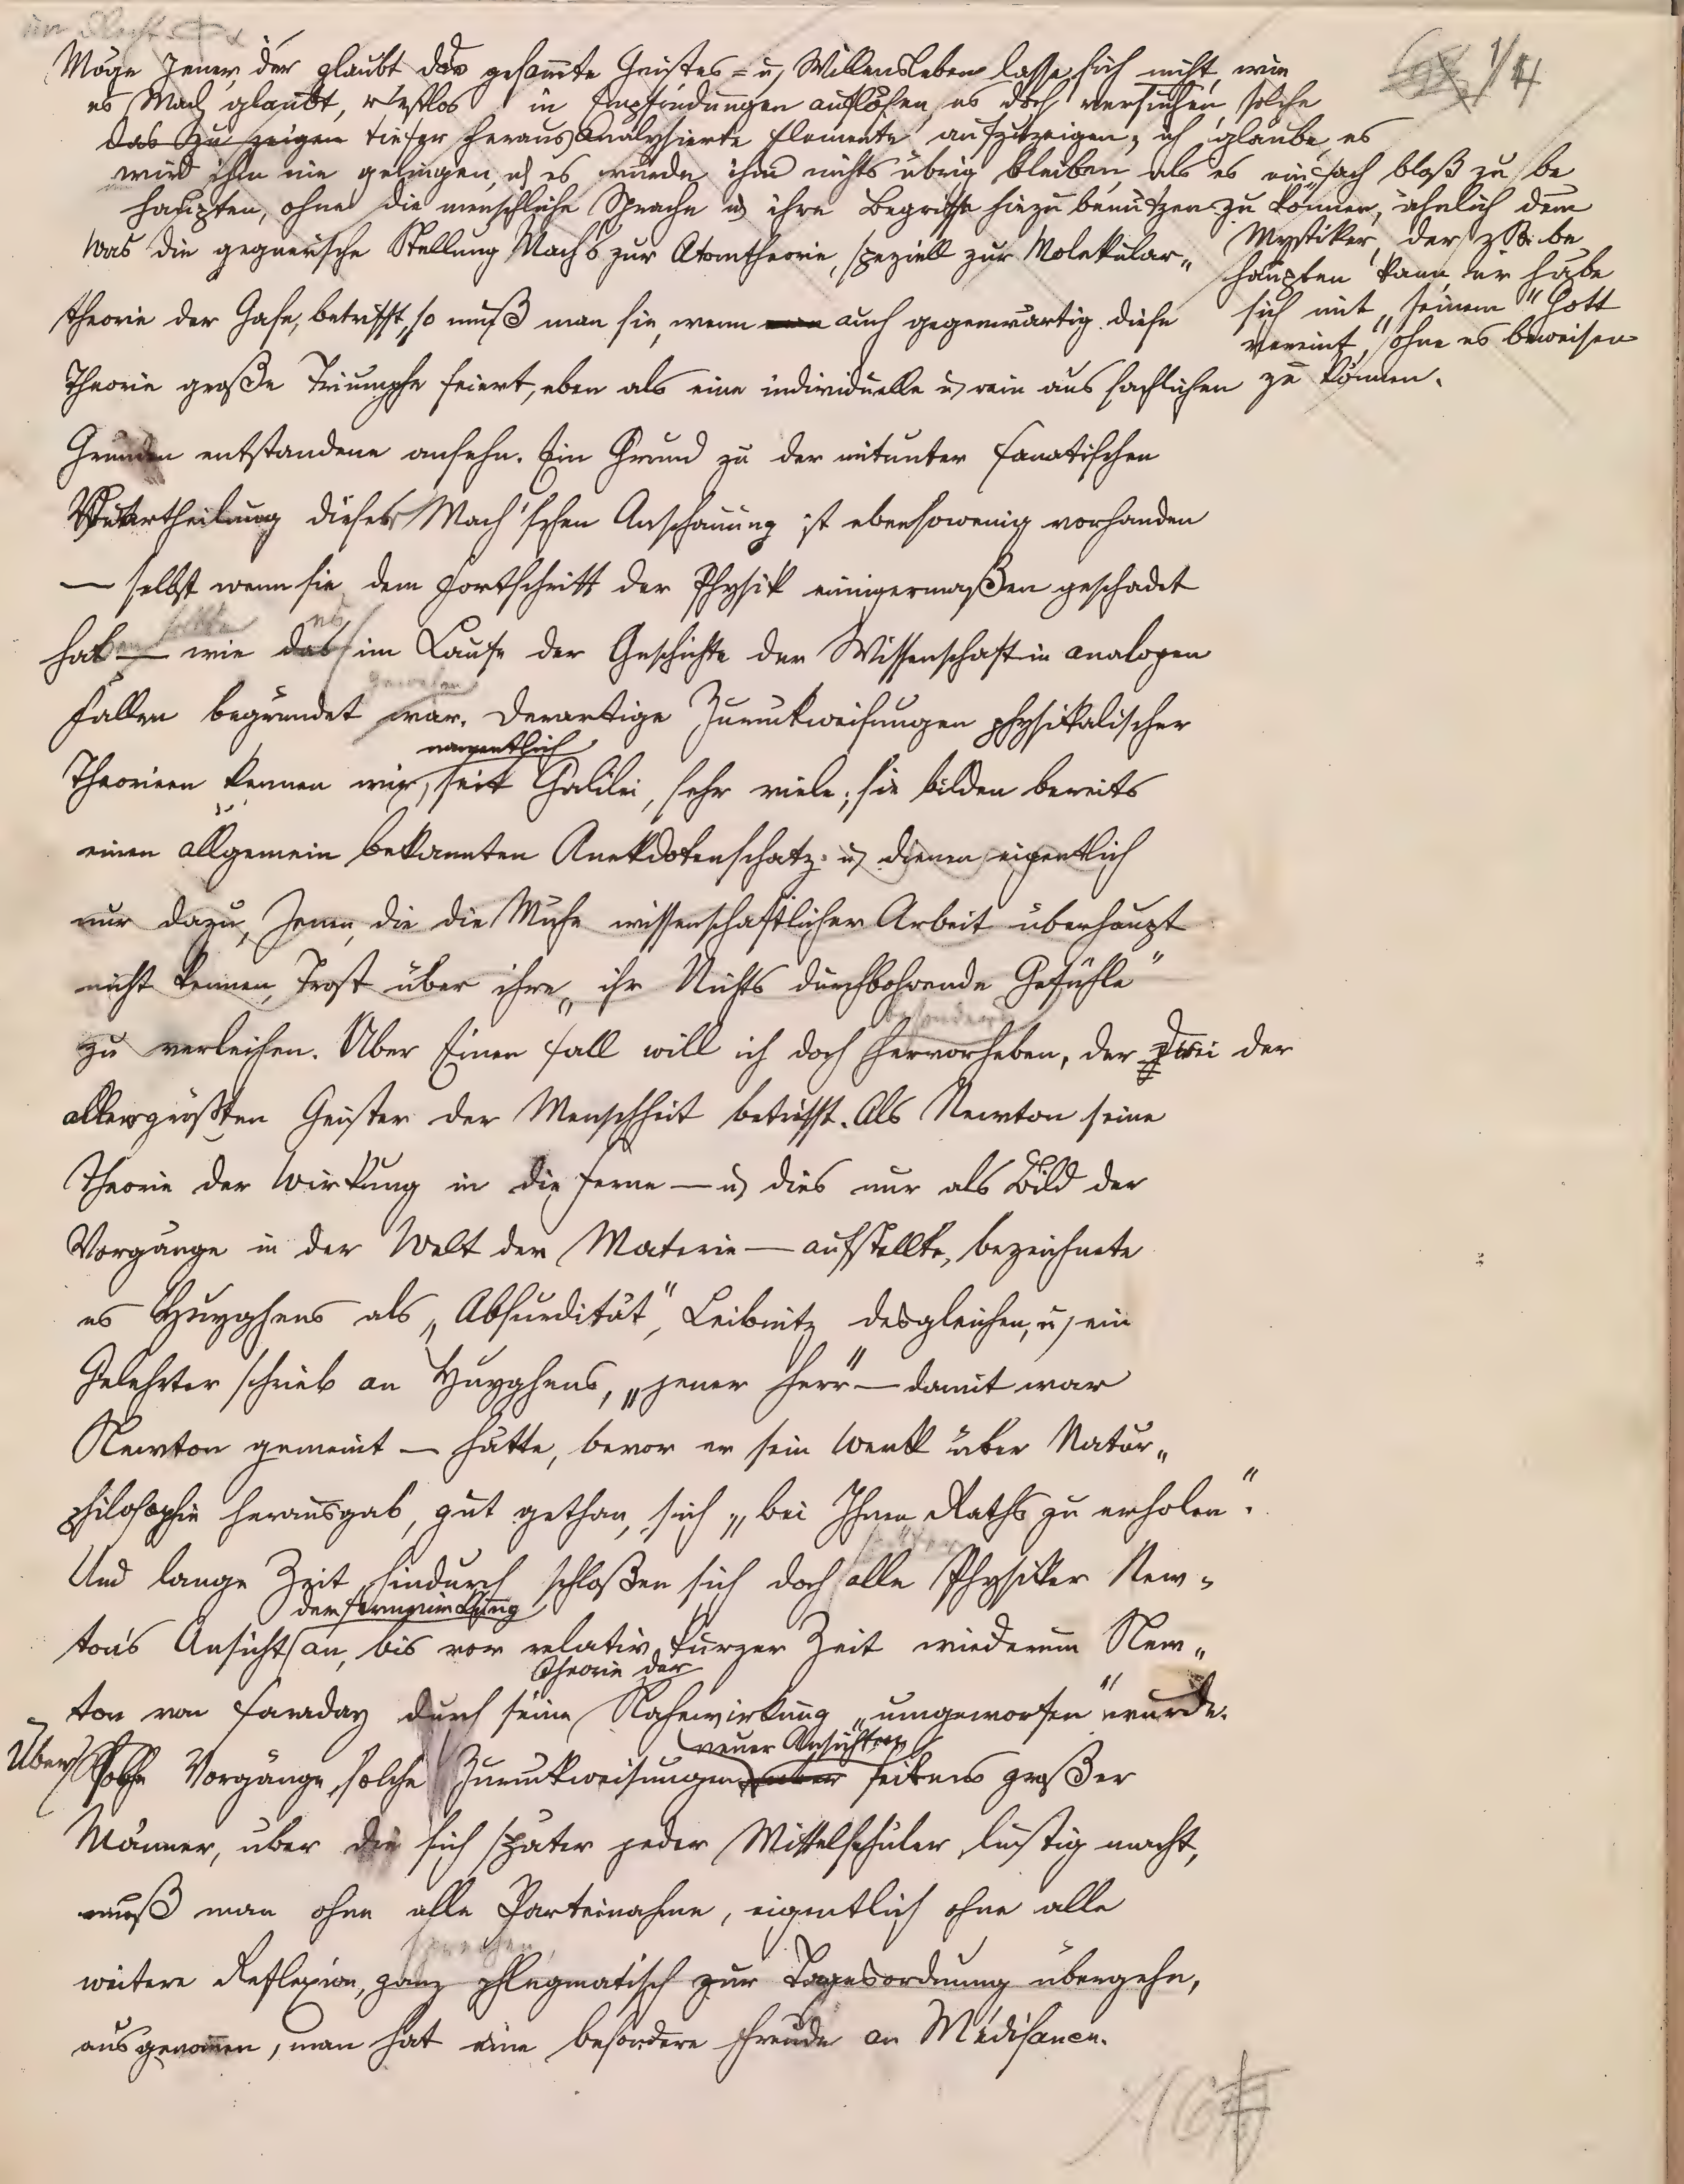 Möge Jener, der glaubt das gesammte Geistes- u. Willensleben lasse sich nicht, wie
es Mach glaubt, restlos in Empfindungen auflösen, es doch versuchen, solche
das zu zeigen tiefer heraus analysierte Elemente aufzuzeigen; ich glaube, es
wird ihm nie gelingen, u. es würde ihm nichts übrig bleiben, als es einfach bloß zu be
haupten, ohne die menschliche Sprache u. ihre Begriffe hiezu benützen zu können, ähnlich dem
Mystiker, der z. B. be
haupten kann, er habe
sich mit „seinem" Gott
vereint, ohne es beweisen
zu können.
1/4
Was die gegnerische Stellung Mach's zur Atomtheorie, speziell zur Molekular„
theorie der Gase, betrifft, so muß man sie, wenn auch gegenwärtig diese
Theorie große Triumphe feiert, eben als eine individuelle u. rein aus sachlichen
Gründen entstandene ansehn. Ein Grund zu der mitunter fanatischen
Verurtheilung dieser Mach'schen Anschauung ist ebensowenig vorhanden
— selbst wenn sie dem Fortschritt der Physik einigermaßen geschadet
haben sollte — wie das es im Laufe der Geschichte der Wissenschaft in analogen
Fällen begründet war. gewesen Derartige Zurückweisungen physikalischer
Theorieen kennen wir, namentlich seit Galilei, sehr viele; sie bilden bereits
einen allgemein bekannten Anekdotenschatz u. dienen eigentlich
nur dazu, Jenen, die die Mühe wissenschaftlicher Arbeit überhaupt
nicht kennen, Trost über ihre „ihr Nichts durchbohrende Gefühle"
zu verleihen. Aber Einen Fall will ich doch besonders hervorheben, der zwei der
allergrößten Geister der Menschheit betrifft. Als Newton seine
Theorie der Wirkung in die Ferne — u. dies nur als Bild der
Vorgänge in der Welt der Materie — aufstellte, bezeichnete
es Huyghens als „Absurdität", Leibnitz desgleichen, u. ein
Gelehrter schrieb an Huyghens, „jener Herr" — damit war
Newton gemeint — hätte, bevor er sein Werk über Natur„
philosophie herausgab, gut gethan, sich „bei Ihnen Raths zu erholen".
Und lange Zeit hindurch schloßen sich doch alle Physiker New„
ton's Ansicht der Fernwirkung an, bis vor relativ kurzer Zeit wiederum New„
ton von Faraday durch seine Theorie der Nahewirkung „umgeworfen" wurde.
Über solche Vorgänge, solche Zurückweisungen neuer Ansichten seitens großer
Männer, über die sich später jeder Mittelschüler lustig macht,
muß man ohne alle Parteinahme, eigentlich ohne alle
weitere Reflexion, sprechen, ganz phlegmatisch zur Tagesordnung übergehn,
ausgenommen, man hat eine besondere Freude an Médisance.